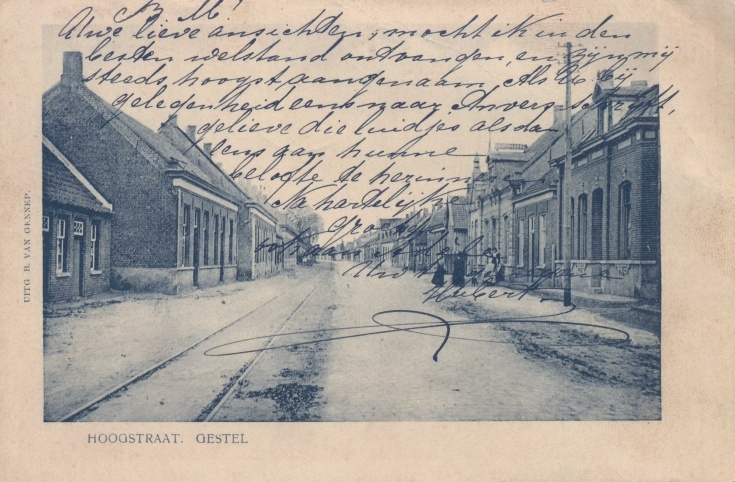 B. M.
Uwe lieve ansichten, mocht ik in den
besten welstand ontvangen, en zijn mij
steeds hoogst aangenaam. Als U bij
gelegenheid eens naar Anvers schrijft,
gelieve die luidjes alsdan
eens aan hunne
belofte te herinneren
Na hartelijke
groeten
ook aan
Hubert.
UITG. B. VAN GENNEP.
HOOGSTRAAT. GESTEL